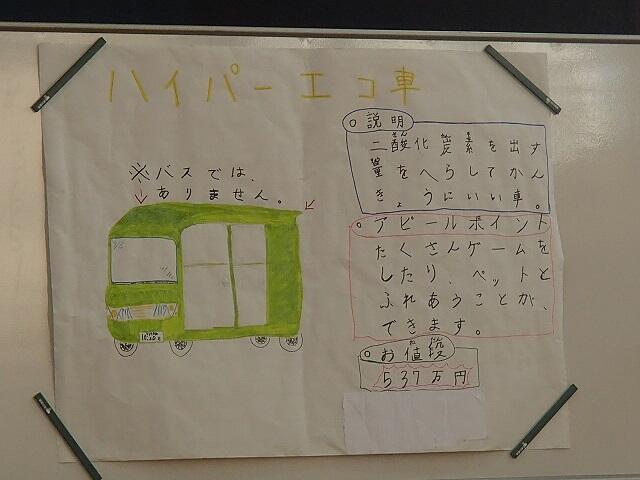 ハイパーエコ車
※バスでは、
ありません。
○説明
二酸化炭素を出す
量をへらしてかん
きょうにいい車。
○アピールポイント
たくさんゲームを
したり、ペットと
ふれあうことが、
できます。
○お値段
537万円